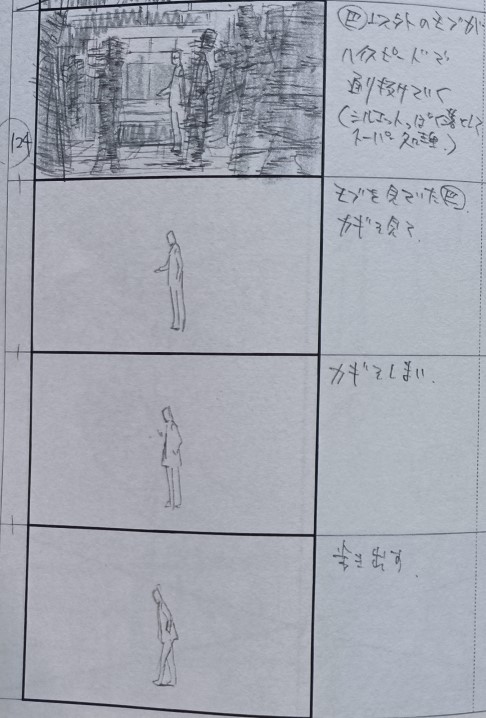 124
㋩以外のモブが
ハイスピードで
通り抜けていく
(シルエットっぽく落として
スーパー処理.)
モブを見ていた㋩
カギを見て.
カギをしまい.
歩き出す.